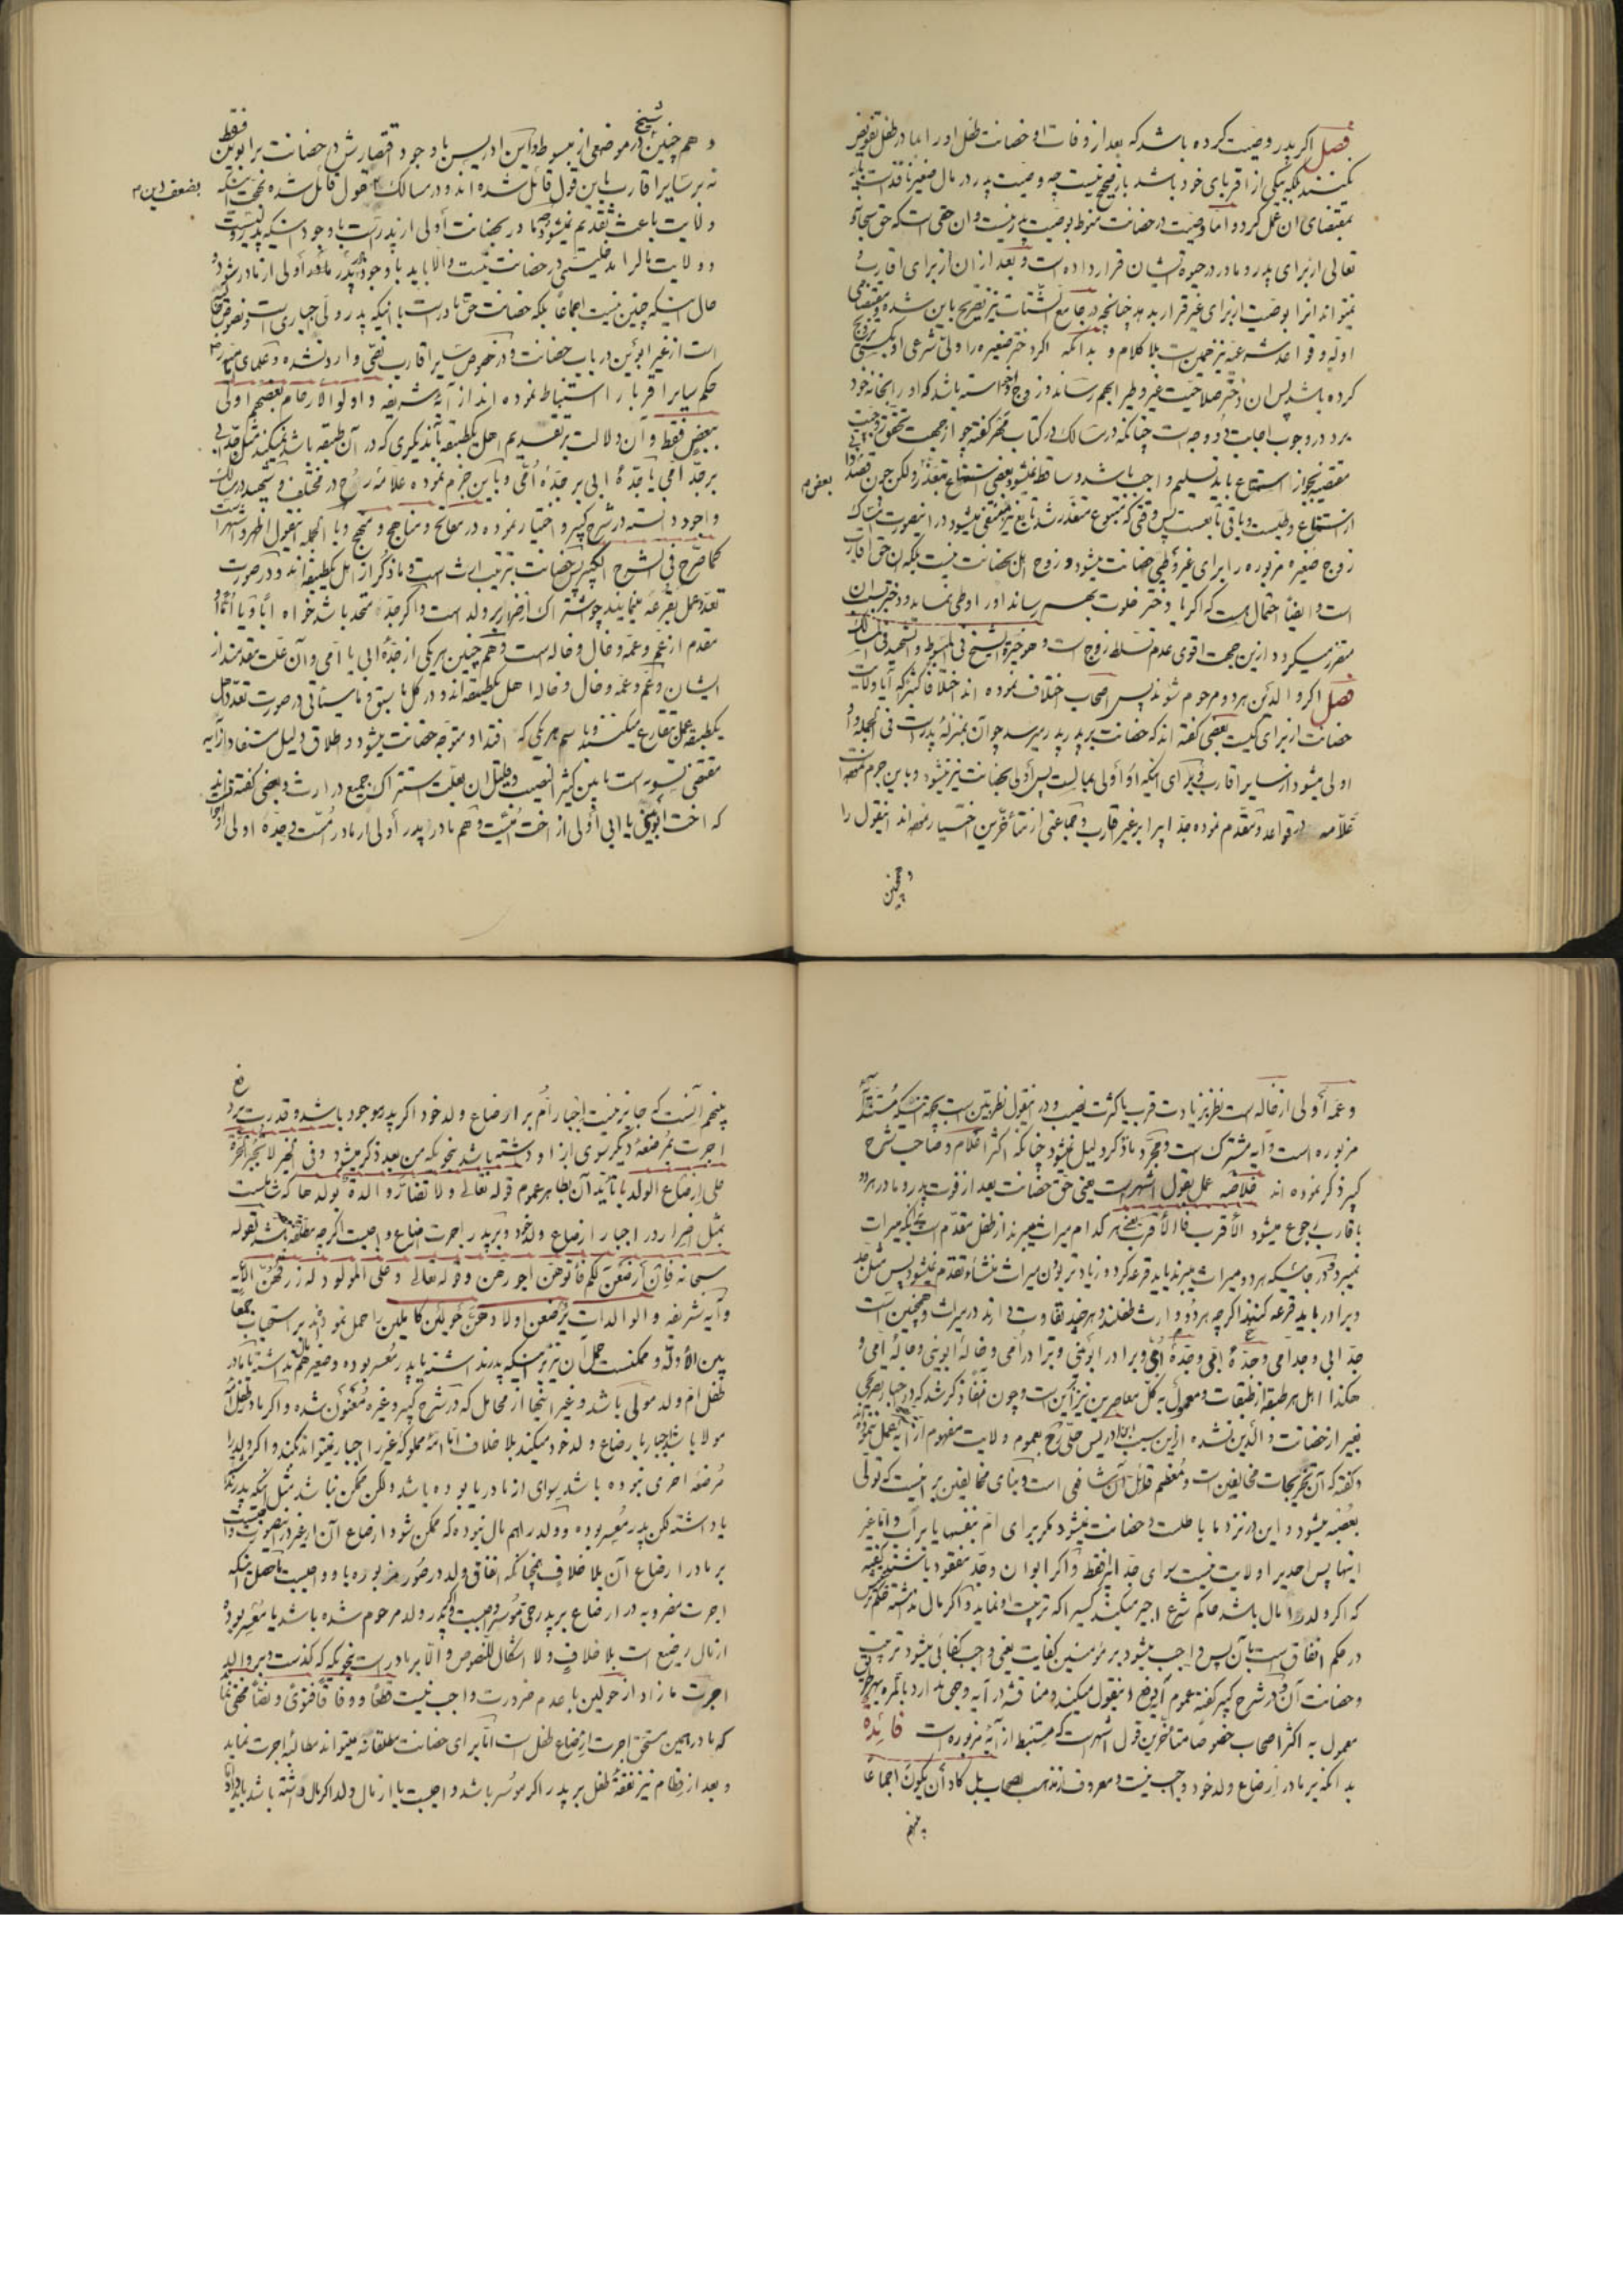 فصل اکر پدر وصیت کرده باشد که بعد از وفات او حضانت طفل او را با مادر طفل تفویض
نکنند بلکه بیکی از اقربای خود باشد باز صحیح نیست چه وصیت پدر در مال صغیر نافذ است باید
بمقتضای آن عمل کرد و اما وصیت در حضانت منوط بوصیت پدر نیست و آن حقی است که حق سبحانه و
تعالی از برای پدر و مادر در حیوة ایشان قرار داده است و بعد از آن از برای اقارب و
نمیتواند آنرا بوصیت از برای غیر قرار بدهد چنانچه در جامع الشتات نیز تصریح باین شده و مقتضای
ادله و قواعد شرعیه نیز همین است بلا کلام و بدانکه اکر دختر صغیره را ولی شرعی او بکسی تزویج
کرده باشد پس آن دختر صلاحیت غیر وطی را بهم رساند و زوج خواسته باشد که او را بخانه خود
برد در وجوب اجابت دو وجه است چنانکه در مسالک در کتاب مهر کفته چو از جهت تحقق زوجیت
مقتضیه بجواز استمتاع باید تسلیم واجب باشد و ساقط نمیشود بعض استمتاع بتعذر و لکن چون قصد
بعض م
از استمتاع وطیست و باقی تابعست پس وقتی که متبوع متعذر شد تابع نیز منتفی میشود در اینصورت تمسک
زوج صغیره مزبوره را برای غیر وطی حضانت میشود و زوج اهل حضانت نیست بلکه آن حق اقارب
است و ایضا احتمال هست که اکر با دختر خلوت بهم رساند او را وطی نماید و دختر بآن
متضرر میکردد از این جهت اقوی عدم تسلط زوج است و هو خیرة الشیخ فی المبسوط و الشهید فی المسالک
فصل اکر والدین هر دو مرحوم شوند پس اصحاب اختلاف نموده اند اختلافا کثیرا که آیا ولایت
حضانت از برای کیست بعضی کفته اند که حضانت بر پدر پدر میرسد چو آن بمنزله پدر است فی الجمله و
اولی میشود از سایر اقارب و برای اینکه او اولی بمالست پس اولی بحضانت نیز میشود و باین جزم نموده است
علامه در قواعد و مقدم نموده جد ابی را بر غیر اقارب و جماعتی از متأخرین اختیار نموده اند اینقول را
و همچنین
و هم چنین شیخ در موضعی از مبسوط و ابن ادریس با وجود اقتصارش در حضانت بر ابوین فقط
نه بر سایر اقارب باین قول قائل شده اند و در مسالک قول قائل شده بجهت اینکه
بضعف این م
ولایت باعث تقدیم نمیشود و الا در حضانت اولی از پدر است با وجود اینکه پدر نیست و
و ولایت مال را مدخلیتی در حضانت نیست و الا باید با وجود پدر مادر اولی از مادر شود و
حال اینکه چنین نیست اجماعا بلکه حضانت حق مادر است با اینکه پدر ولی اجباری است و نصوص خالی
است از غیر ابوین در باب حضانت و در خصوص سایر اقارب نصی وارد نشده و علمای ما
حکم سایر اقربا را استنباط نموده اند از آیه شریفه و اولوا الارحام بعضهم اولی
ببعض فقط و آن دلالت بر تقدیم اهل یکطبقه بآن دیکری که در آن طبقه باشد نمیکند مثل جد ابی
بر جد امی یا جده ابی بر جده امی و باین جزم نموده علامه رح در مختلف و شهید در مسالک
و اجود دانسته در شرح کبیر و اختیار نموده در مفاتح و مناهج و منهج و بالجمله اینقول اظهر و اشهر است
کما صرح فی الشرح الکبیر پس حضانت بترتیب ارث است و ما ذکر از اهل یکطبقه اند و در صورت
تعدد عمل بقرعه مینمایند چو شتراک اضرار بر ولد است و اکر جده متحد باشد خواه ابا و یا اما
مقدم از عم و عمه و خال و خاله است و هم چنین هر یکی از جده ابی یا امی و آن علت مقدمند از
ایشان و عم و عمه و خال و خاله اهل یکطبقه اند و در کل ما سبق و ما سیأتی در صورت تعدد اهل
یکطبقه عمل بتقارع میکنند و باسم هر یکی که افتد او متوجه حضانت میشود و اطلاق دلیل مستفاد از آیه
مقتضی تسویه است مابین کثیر النصیب و قلیل آن بعلت اشتراک جمیع در ارث و بعضی کفته اند
که اخت ابوینی یا ابی اولی از اخت امیست و هم مادر پدر اولی از مادر مادر است و جده اولی از
و عمه اولی از خاله است نظر بزیادت قرب یا کثرت نصیب و در اینقول نظر بین است بجهة اینکه مستند آیه
مزبوره است و آیه مشترک است و مجرد ما ذکر دلیل نمیشود چنانکه اکثر اعلام و صاحب شرح
کبیر ذکر نموده اند خلاصه عمل بقول اشهر است یعنی حق حضانت بعد از فوت پدر و مادر هر دو
باقارب رجوع میشود الاقرب فالاقرب یعنی هر کدام میراث میبرند از طفل مقدم است بآنکه میراث
نمیبرد و در جائیکه هر دو میراث میبرند باید قرعه کرد و زیادتر بودن میراث منشاء تقدم نمیشود پس مثل جد
و برادر باید قرعه کنند اکرچه هر دو وارث طفلند و هر چند تفاوت دارند در میراث و همچنین است
جد ابی و جد امی و جده ابی و جده امی و برادر ابوینی و برادر امی و خاله ابوینی و خاله امی و
هکذا اهل هر طبقه از طبقات و معمول به کل معاصرین نیز این است و چون نصا ذکر نشد که در اخبار تصریحی
بغیر از حضانت والدین نشده از این سبب ابن ادریس حلی رح بعموم ولایت مفهوم از آیه عمل ننموده
و کفته که آن تخریجات مخالفین است و معظم قائل آن شافعی است و بنای مخالفین بر اینست که تولی
بعضه میشود و این در نزد ما باطلست و حضانت نمیشود مکر برای ام بنفسها یا بر أب و اما غیر
اینها پس احدیرا ولایت نیست سوای جد اب فقط و اکر ابوان و جد مفقود باشند کفته
که اکر ولد را مال باشد حاکم شرع اجیر میکند کسیرا که تربیت او نماید و اکر مال نداشته
در حکم انفاق است بآن پس واجب میشود بر مؤمنین کفایت یعنی وجوب کفائی میشود تربیت
و حضانت آن و در شرح کبیر کفته عموم آیه دفع اینقول میکند و مناقشه در آیه وجهی ندارد بالمره
معمول به اکثر اصحاب خصوصا متأخرین قول اشهر است که مستنبط از آیه مزبوره است فائده
بدانکه بر مادر ارضاع ولد خود واجب نیست و معروف از مذهب اصحاب بل کاد أن یکون اجماعا
پنجم
پنجم آنست که جایز نیست اجبار ام بر ارضاع ولد خود اکر پدر موجود باشد و قدرت بر
اجرت بمرضعه دیکر سوی از او داشته باشد بنحویکه من بعد ذکر میشود و فی الخبر لا تجبر الحرة
علی ارضاع الولد با تأیید آن بظاهر عموم قوله تعالی و لا تضار والدة بولدها که شاملست
بمثل اضرار در اجبار ارضاع ولد خود و بر پدر اجرت رضاع واجبست اکرچه مطلقه باشد لقوله
سبحانه فان ارضعن لکم فآتوهن اجورهن و قوله تعالی و علی المولود له رزقهن الایه
و آیه شریفه و الوالدات یرضعن اولادهن حولین کاملین را حمل نموده اند بر استحباب جمعا
بین الادلة و ممکنست حمل آن نیز بر اینکه پدر نداشته یا پدر معسر بوده و صغیر هم مال نداشته یا مادر
طفل ام ولد مولی باشد و غیر اینها از محامل که در شرح کبیر و غیره معنون شده و اکر مادر طفل امه
مولا باشد اجبار بارضاع ولد خود میکند بلا خلاف اما امه مملوکه غیر را اجبار نمیتواند بکند و اکر ولد را
مرضعه اخری نبوده باشد سوای از مادر یا بوده باشد ولکن ممکن نباشد مثل آنکه پدر
یا داشته لکن پدر معسر بوده و ولد را هم مال نبوده که ممکن شود ارضاع آن از غیر در اینصورت واجبست
بر مادر ارضاع آن بلا خلاف چنانکه انفاق ولد در صور مزبوره باو واجبست حاصل اینکه
اجرت مضروبه در ارضاع بر پدر حی موسر واجبست و اکر پدر ولد مرحوم شده باشد یا معسر بوده
از مال رضیع است بلا خلاف و لا اشکال للنصوص و الا بر مادر است بنحویکه کذشت و بر والد
اجرت ما زاد از حولین با عدم ضرورت واجب نیست قطعا و وفاقا فتوی و نصا مخفی نماند
که مادر همین مستحق اجرت ارضاع طفل است اما برای حضانت مطلقا نه میتواند مطالبه اجرت نماید
و بعد از فطام نیز نفقه طفل بر پدر اکر موسر باشد واجبست یا از مال ولد اکر مال داشته باشد